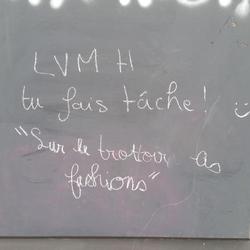 LVMH
tu fais tâche!
"Sur le trottoir as
fashions"